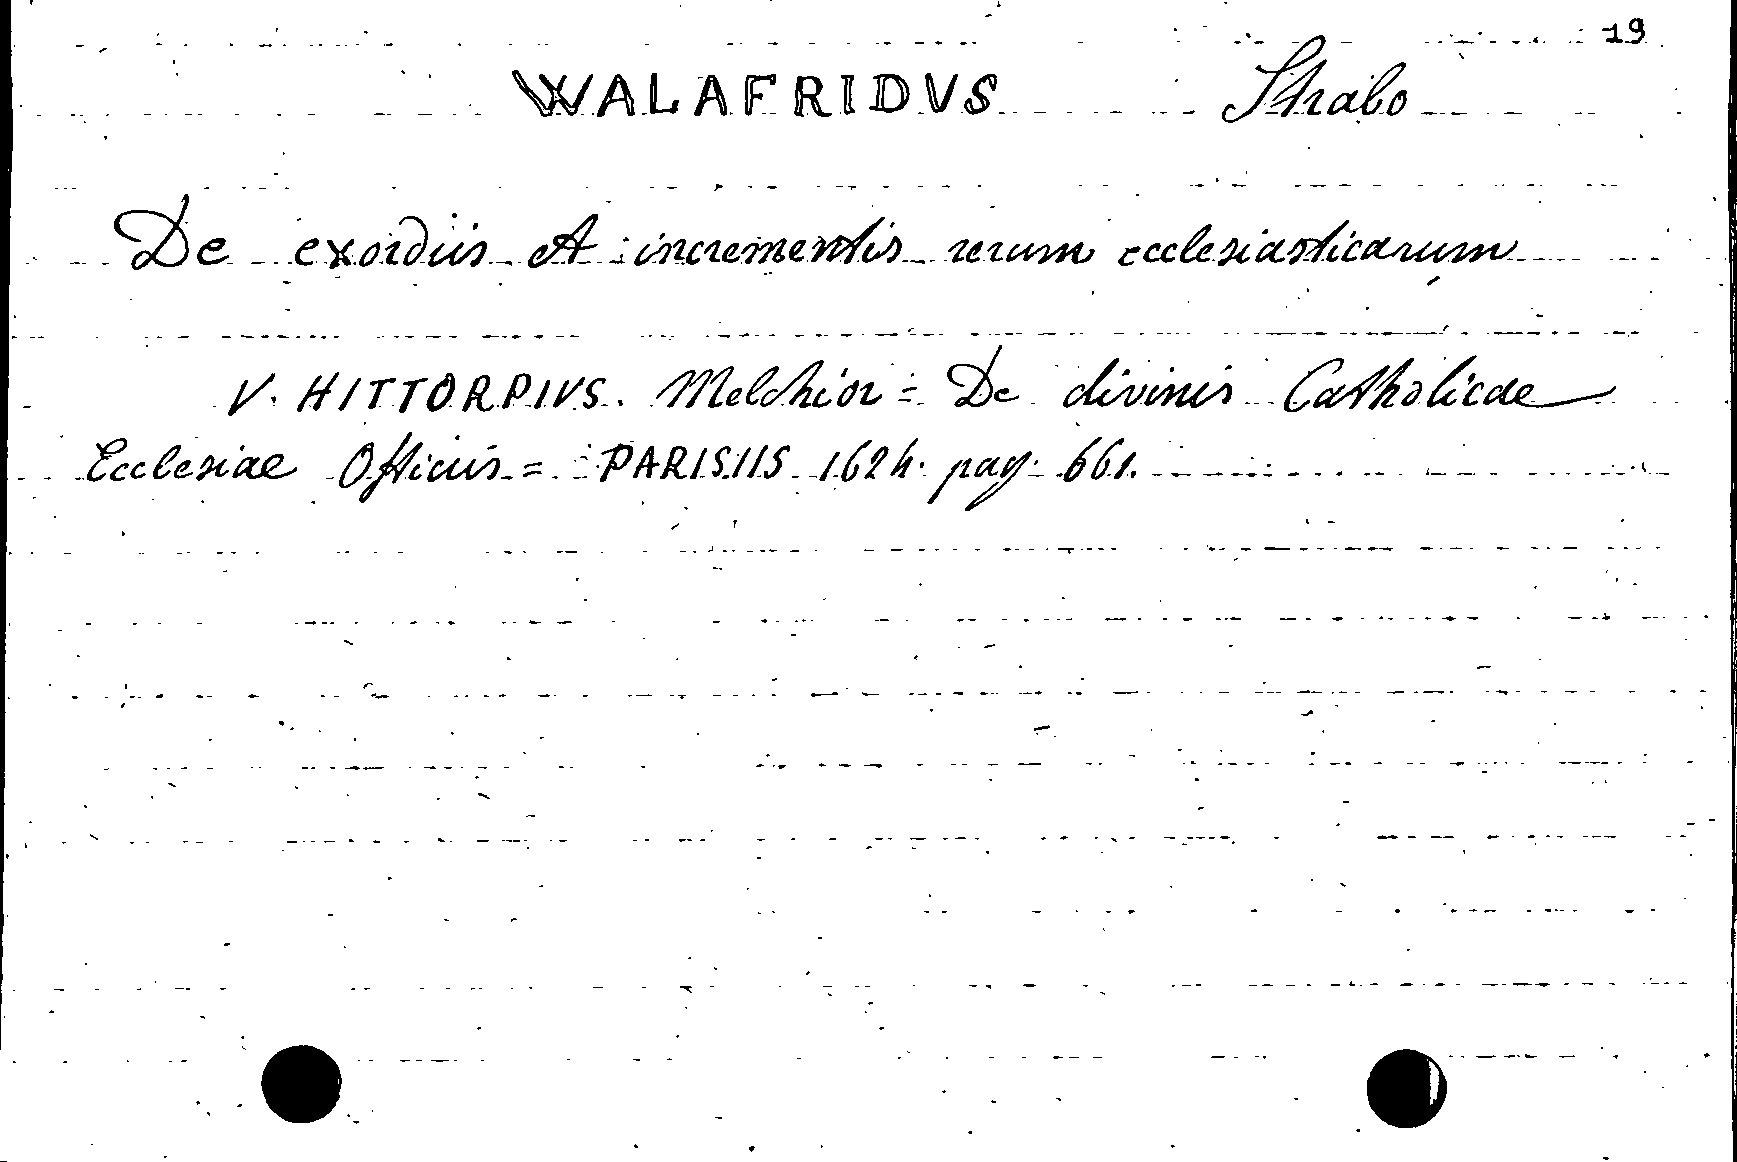 19
WALAFRIDVS Strabo
De exordiis et incrementis rerum ecclesiasticarum
V. HITTORPIVS. Melchior = De divinis Catholicae
Ecclesiae Officiis = PARISIIS 1624. pag. 661.